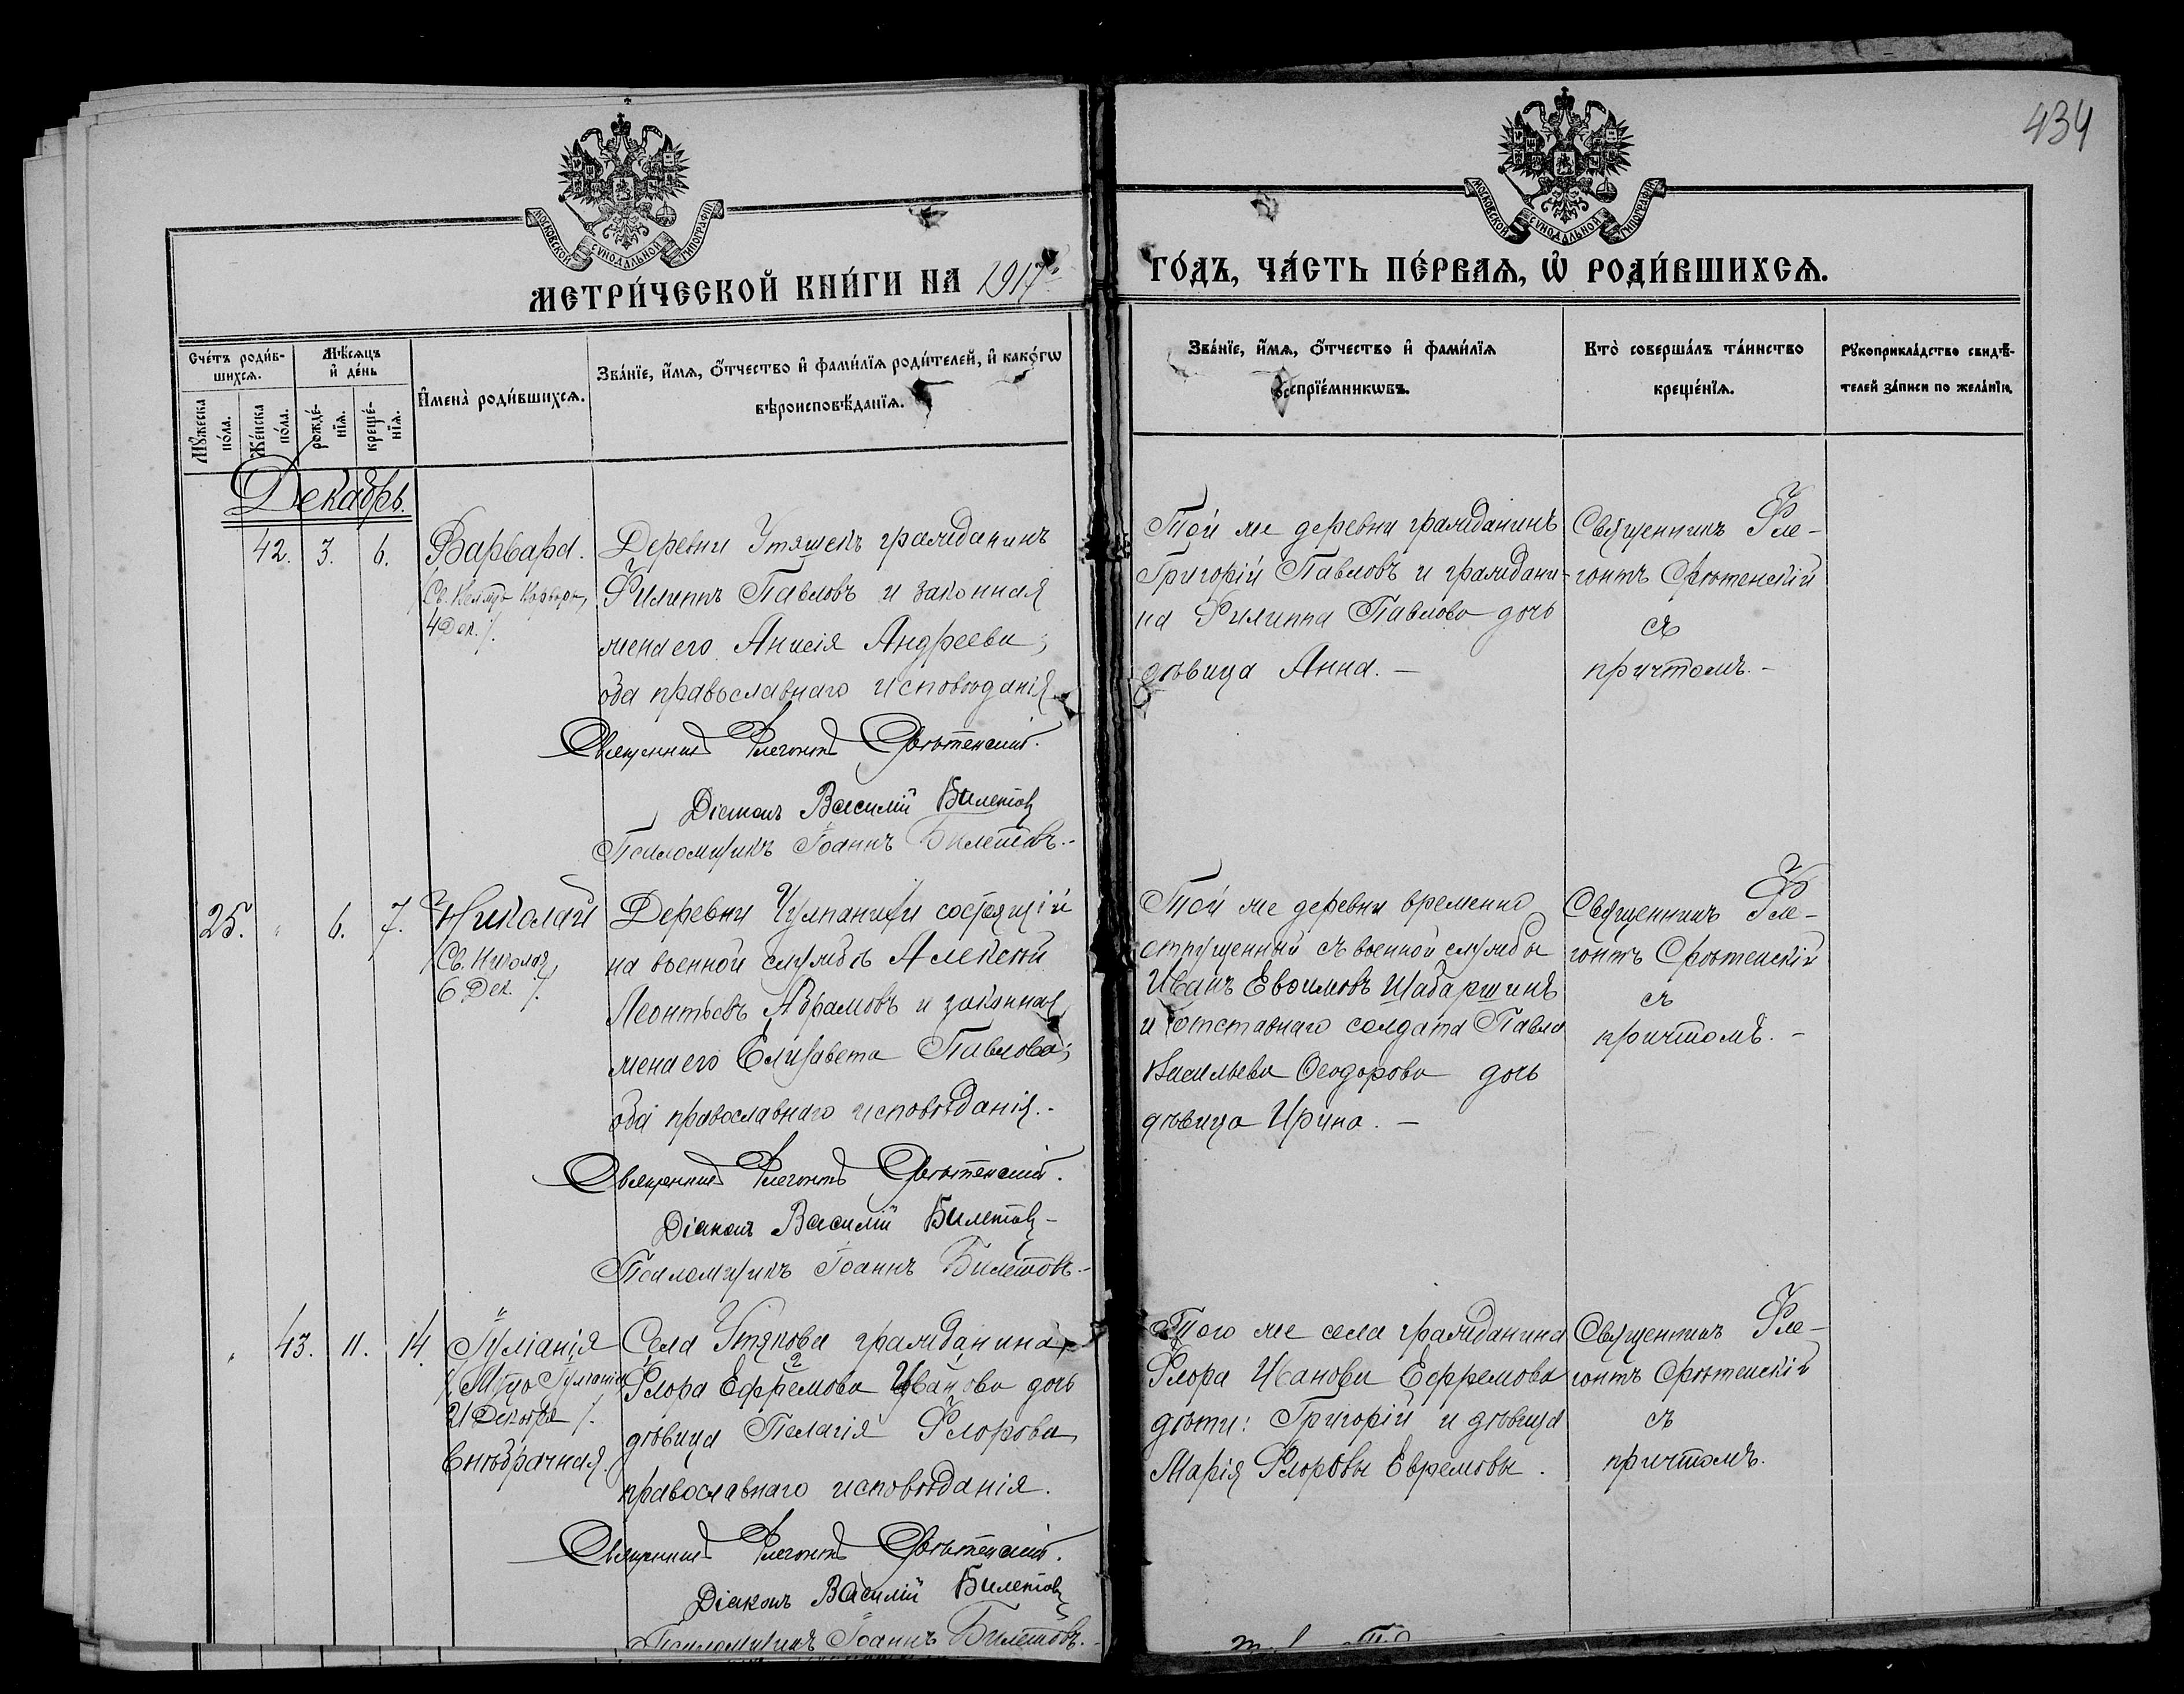 434
МОСКОВСКОЙ СѴНОДАЛЬНОЙ ТИПОГРАФІИ
МОСКОВСКОЙ СѴНОДАЛЬНОЙ ТИПОГРАФІИ
МЕТРИ́ЧЕСКОЙ КНИ́ГИ НА 1917
ГО́ДЪ, ЧА́СТЬ ПЕ́РВАѦ, Ѡ҆ РОДИ́ВШИХСѦ.
Сче́тъ роди́в-
шихсѧ.
Мѣ́сѧцъ
и҆ де́нь
Мꙋ́жеска
по́ла.
Же́нска
по́ла.
рожде́-
нїѧ.
креще́-
нїѧ.
И҆мена̀ роди́вшихсѧ.
Зва́нїе, и҆́мѧ, ѻ҆́тчество и҆ фами́лїѧ роди́телей, и҆ како́гѡ
вѣроисповѣ́данїѧ.
Зва́нїе, и҆́мѧ, ѻ҆́тчество и҆ фами́лїѧ
воспрїе́мникѡвъ.
Кто̀ соверша́лъ та́инство
креще́нїѧ.
Рꙋкоприкла́дство свидѣ́-
телей за́писи по жела́нїю.
Декабрь.
42. 3. 6.
Варвара.
4 Дек./.
Деревни Утяшекъ гражданинъ
Филиппъ Павловъ и законная
жена его Анисія Андреева;
оба православнаго исповѣданія.
Священникъ Флегонтъ Срѣтенскій.
Діаконъ Василій Билетовъ
Псаломщикъ Іоаннъ Билетовъ.-
Той же деревни гражданинъ
Григорій Павловъ и граждани-
на Филиппа Павлова дочь
дѣвица Анна. —
Священникъ Фле-
гонтъ Срѣтенскій
съ
причтомъ. -
25. " 6. 7.
Николай
/Св. Николая
6 Дек. /.
Деревни Чулпанихи состоящій
на военной службѣ Алексѣй
Леонтьевъ Абрамовъ и законная
жена его Елизавета Павлова;
оба православнаго исповѣданія.-
Священникъ Флегонтъ Срѣтенскій.
Діаконъ Василій Билетовъ-
Псаломщикъ Іоаннъ Билетовъ.-
Той же деревни временно
отпущенный съ военной службы
Иванъ Евѳимовъ Шабаршинъ
и отставнаго солдата Павла
Васильева Ѳеодорова дочь
дѣвица Ирина. —
Священникъ Фле-
гонтъ Срѣтенскій
съ
причтомъ. -
" 43. 11. 14.
Іуліанія
/Мцы Іуліаніи
21 Декабря /.
Внѣбрачная.
Села Утякова гражданина
Флора Ефремова Иванова дочь
дѣвица Пелагія Флорова
православнаго исповѣданія.
Священникъ Флегонтъ Срѣтенскій.
Діаконъ Василій Билетовъ
Псаломщикъ Іоаннъ Билетовъ.-
Того же села гражданина
Флора Иванова Ефремова
дѣти: Григорій и дѣвица
Марія Флоровы Ефремовы.
Священникъ Фле-
гонтъ Срѣтенскій
съ
причтомъ.